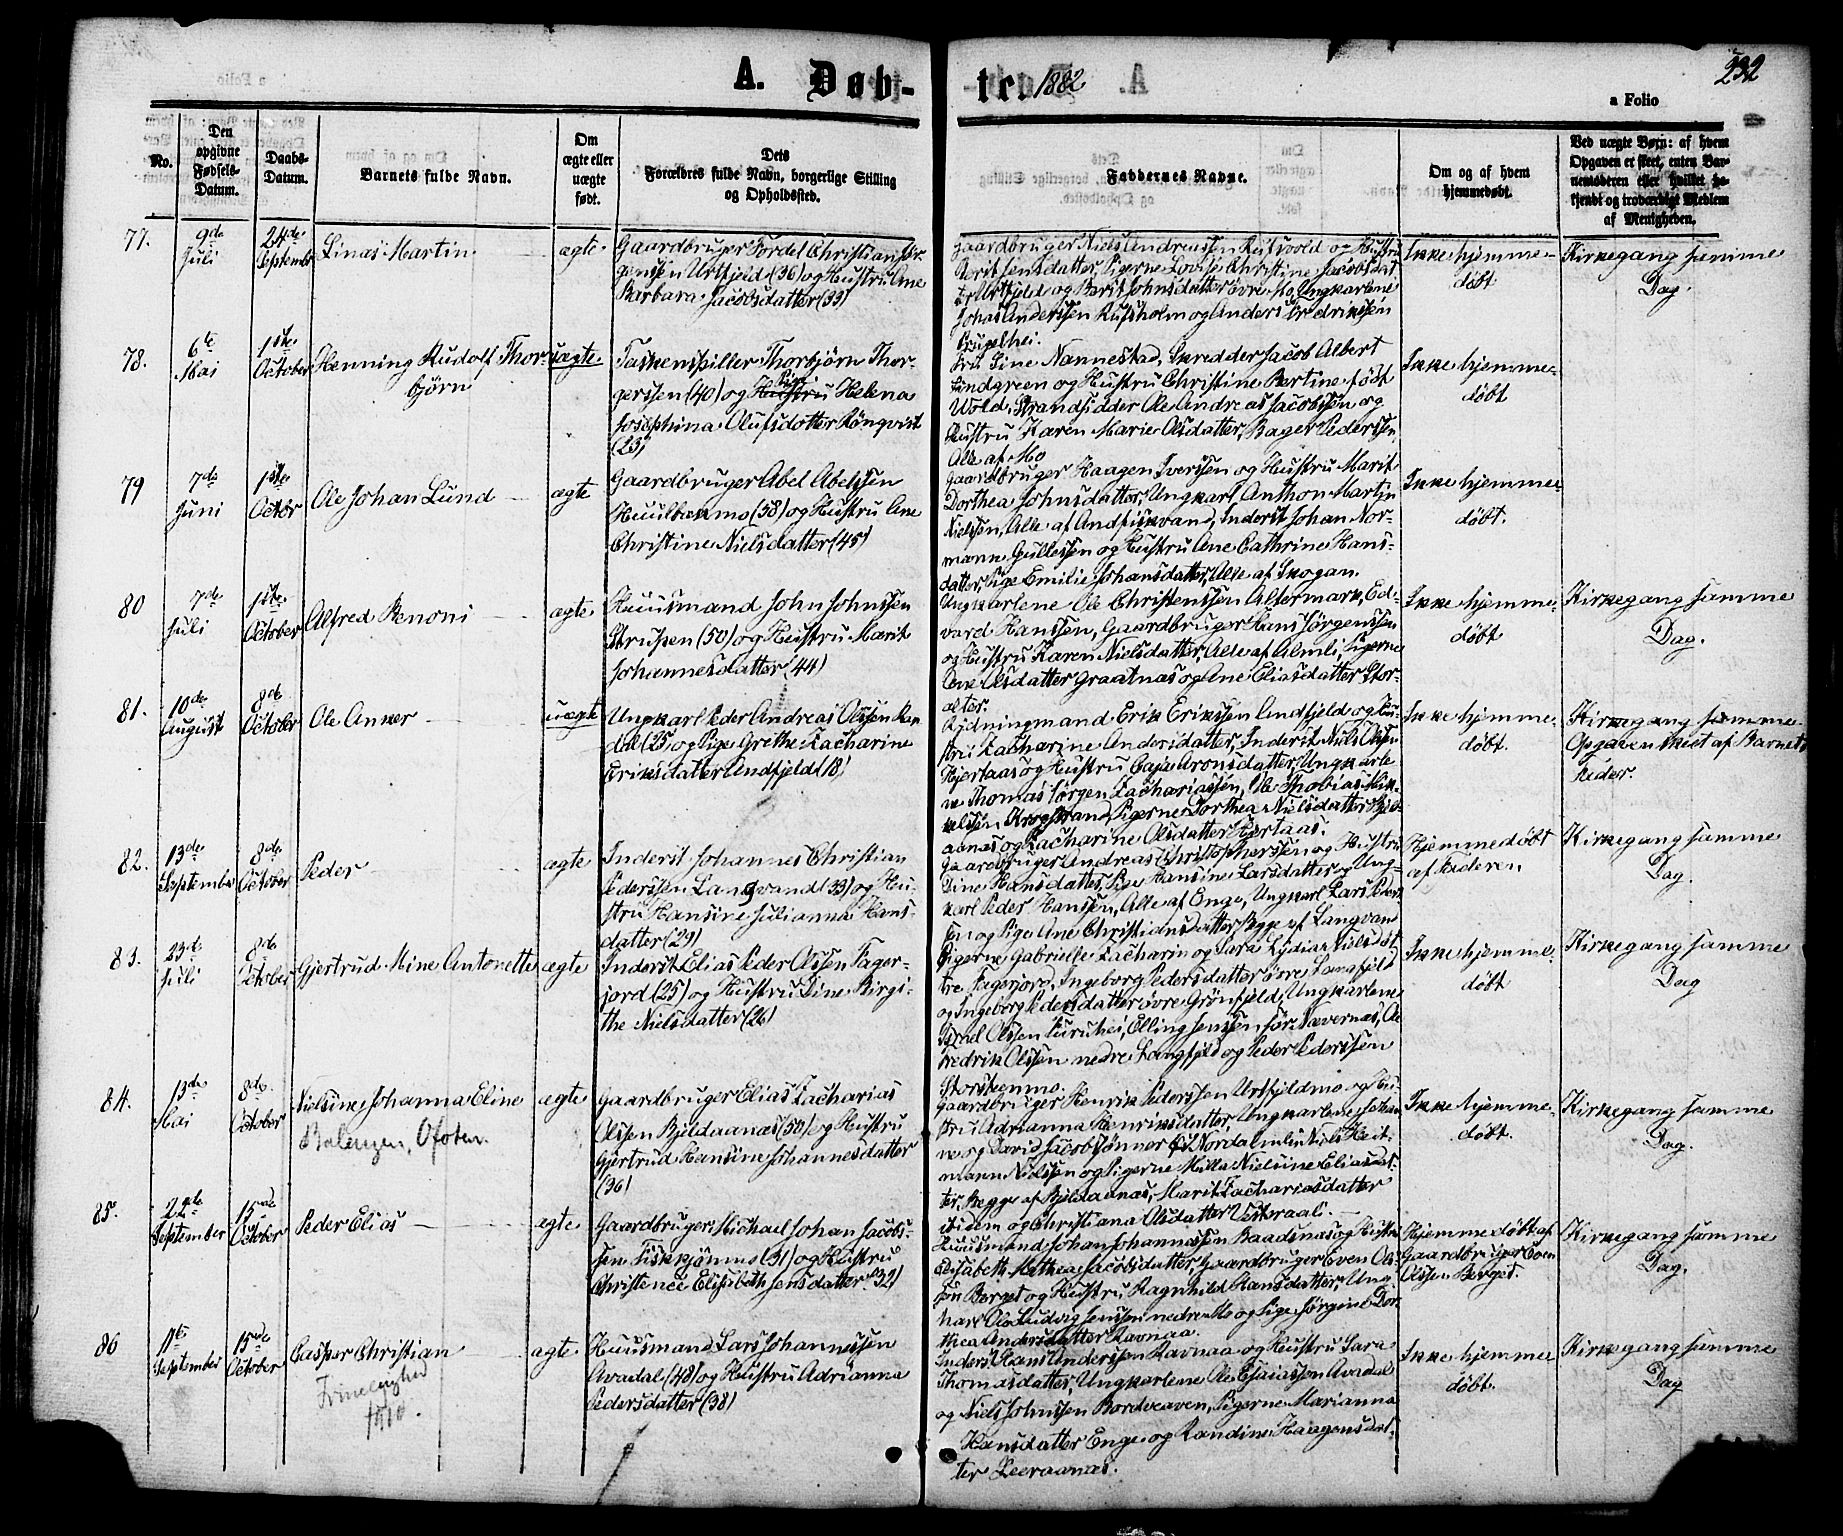 A. Døb- te. 1882
232
a Folio
No.
Den opgivne Fødsels-Datum.
Daabs-Datum.
Barnets fulde Navn.
Om ægte eller uægte født.
Dets Forældres fulde Navn, borgerlige Stilling og Opholdssted.
Faddernes Navne.
Om og af hvem hjemmedøbt.
Ved uægte Børn: af hvem Opgaven er skeet, enten Barnemoderen eller hvilket bekjendt og troværdigt Medlem af Menigheden.
77.
9de Juli
24de September
Linas Martin
ægte
Gaardbruger Fordel Christian Jør-
genssen Urtfjeld (36) og Hustru Ane
Barbara Jacobsdatter (33)
Gaardbruger Niels Andreassen og Hustru
Marit Jensdatter, Pigerne Lovise Christine Jacobsdat
ter Urtfjeld og Berit Johnsdatter øvre Mo, Ungkarlene
Johas Anderssen og Anders Fredrikssen
Ikke hjemme-
døbt
Kirkegang samme
Dag.
78.
6te Mai
1ste October
Henning Rudolf Thor-
bjørn
uægte
Taskenspiller Thorbjørn Thor-
gerssen (40) og Hustru Pige Helena
Josephina Olufsdotter Rönqvist
(23)
Fru Sine Nannestad, Skredder Jacob Albert
Lindgreen og Hustru Christine Bertine født
Wold, Strandsidder Ole Andreas Jacobssen og
Hustru Karen Marie Olsdatter, Bager Pederssen,
Alle af Mo
Ikke hjemme-
døbt
79
7de Juni
1ste Octbr
Ole Johan Lund
ægte
Gaardbruger Abel Abelssen
(58) og Hustru Ane
Christine Nielsdatter (45)
Gaardbruger Haagen Iverssen og Hustru Marit
Dorthea Johnsdatter, Ungkarl Anthon Martin
Nielssen, Alle af Andfiskvand, Inderst Johan Nor-
mann Gullessen og Hustru Ane Cathrine Hans-
datter, Pige Emilie Johansdatter, Alle af Skogan.
Ikke hjemme-
døbt.
80
7de Juli
1ste October
Alfred Benoni
ægte
Huusmand John Johnssen
Strupen (50) og Hustru Marit
Johannesdatter (44)
Ungkarlene Ole Christenssen Altermark, Ed-
vard Hanssen, Gaardbruger Hans Jørgenssen
og Hustru Karen Nielsdatter, Alle af Almli, Pigerne
Ane Olsdatter Graatnæs og Ane Eliasdatter Stor-
alter.
Ikke hjemme-
døbt
Kirkegang samme
Dag.
81.
10de August
8de October
Ole Anker
uægte
Ungkarl Peder Andreas Olssen Ran-
dal (25) og Pige Grethe Zacharine
Eriksdatter Andfjeld (18)
Rydningmand Erik Erikssen Andfjeld og Hu-
stru Zacharine Andersdatter, Inderst Niels Olssen
Hjertaas og Hustru Caja Aronsdatter, Ungkarle-
ne Thomas Jørgen Zachariassen, Ole Thobias Mik-
kelssen Krogstrand, Pigerne Dorthea Nielsdatter Bjeld-
aanæs og Zacharine Olsdatter Hjertaas.
Ikke hjemme-
døbt.
Kirkegang samme
Opgaven skeet af Barnets
Fader.
82.
13de September
8de October
Peder
ægte
Inderst Johannes Christian
Pederssen Langvand (33) og Hu-
stru Hansine Julianna Hans-
datter (29)
Gaardbruger Andreas Christopherssen og Hustru
Dine Hansdatter, Pige Hansine Larsdatter og Ung-
karl Peder Hanssen, Alle af Enge, Ungkarl Lars Peders-
sen og Pige Ane Christiansdatter, Begge af Langvan
Hjemmedøbt
af Faderen
Kirkegang samme
Dag.
83.
23de Juli
8de October
Gjertrud Mine Antonette
ægte
Inderst Elias Peder Olssen Fager-
jord (25) og Hustru Dine Birgi-
the Nielsdatter (26)
Pigerne Gabrielle Zacharin og Sara Lydia Nielsdøt-
tre Fagerjord, Ingeborg Pedersdatter øvre Langfjeld
og Ingeborg Pedersdatter øvre Grønfjeld, Ungkarlene
Israel Olssen Furuhei, Elling Jenssen Nævernæs, Ole
Fredrik Olssen nedre Langfjeld og Peder Pederssen
Storstenmo.
Ikke hjemme-
døbt
Kirkegang samme
Dag
84.
13de Mai
8de October
Nielsine Johanna Eline
Balangen, Ofoten.
ægte
Gaardbruger Elias Zacharias
Olssen Bjeldaanæs (50) og Hustru
Gjertrud Hansine Johannesdatter
(36)
Gaardbruger Henrik Pederssen Urtfjeldmo og Hu-
stru Adrianna Henriksdatter, Ungkarlene Johan
ne og David Jacobsønner Nordalmlin Niels Heit-
mann Nielssen og Pigerne Milla Nielsine Eliasdat-
ter, Begge af Bjeldaanæs, Marit Zachariasdatter
ibidem og Christiana Olsdatter Vesteraali.
Ikke hjemme-
døbt.
Kirkegang samme
Dag.
85.
22de September
15de October
Peder Elias
ægte
Gaardbruger Michael Johan Jacobs-
sen Fisktjønmo (31) og Hustru
Christence Elisabeth Jensdatter (32)
Huusmand Johan Johannessen Baadsnæs og Hustru
Elisabeth Mathea Jacobsdatter, Gaardbruger Even Ols-
sen Berget og Hustru Ragnhild Hansdatter, Ung-
karl Ole Ludvig Jenssen nedre Mo og Pige Jørgine Dor-
thea Andersdatter Ravnaa.
Hjemmedøbt af
Gaardbruger Even
Olssen Berget.
Kirkegang samme
Dag.
86
11te September
15de October
Casper Christian
ægte
Huusmand Lars Johannessen
Avadal (48) og Hustru Adrianna
Pedersdatter (38)
Inderst Hans Anderssen Ravnaa og Hustru Sara
Thomasdatter, Ungkarlene Ole Esaiassen Avadal
og Niels Johnssen Bordveaven, Pigerne Marianna
Hansdatter Enge og Randine Haagensdat-
ter Leeraanæs.
Ikke hjemme
døbt.
Kirkegang samme
Dag